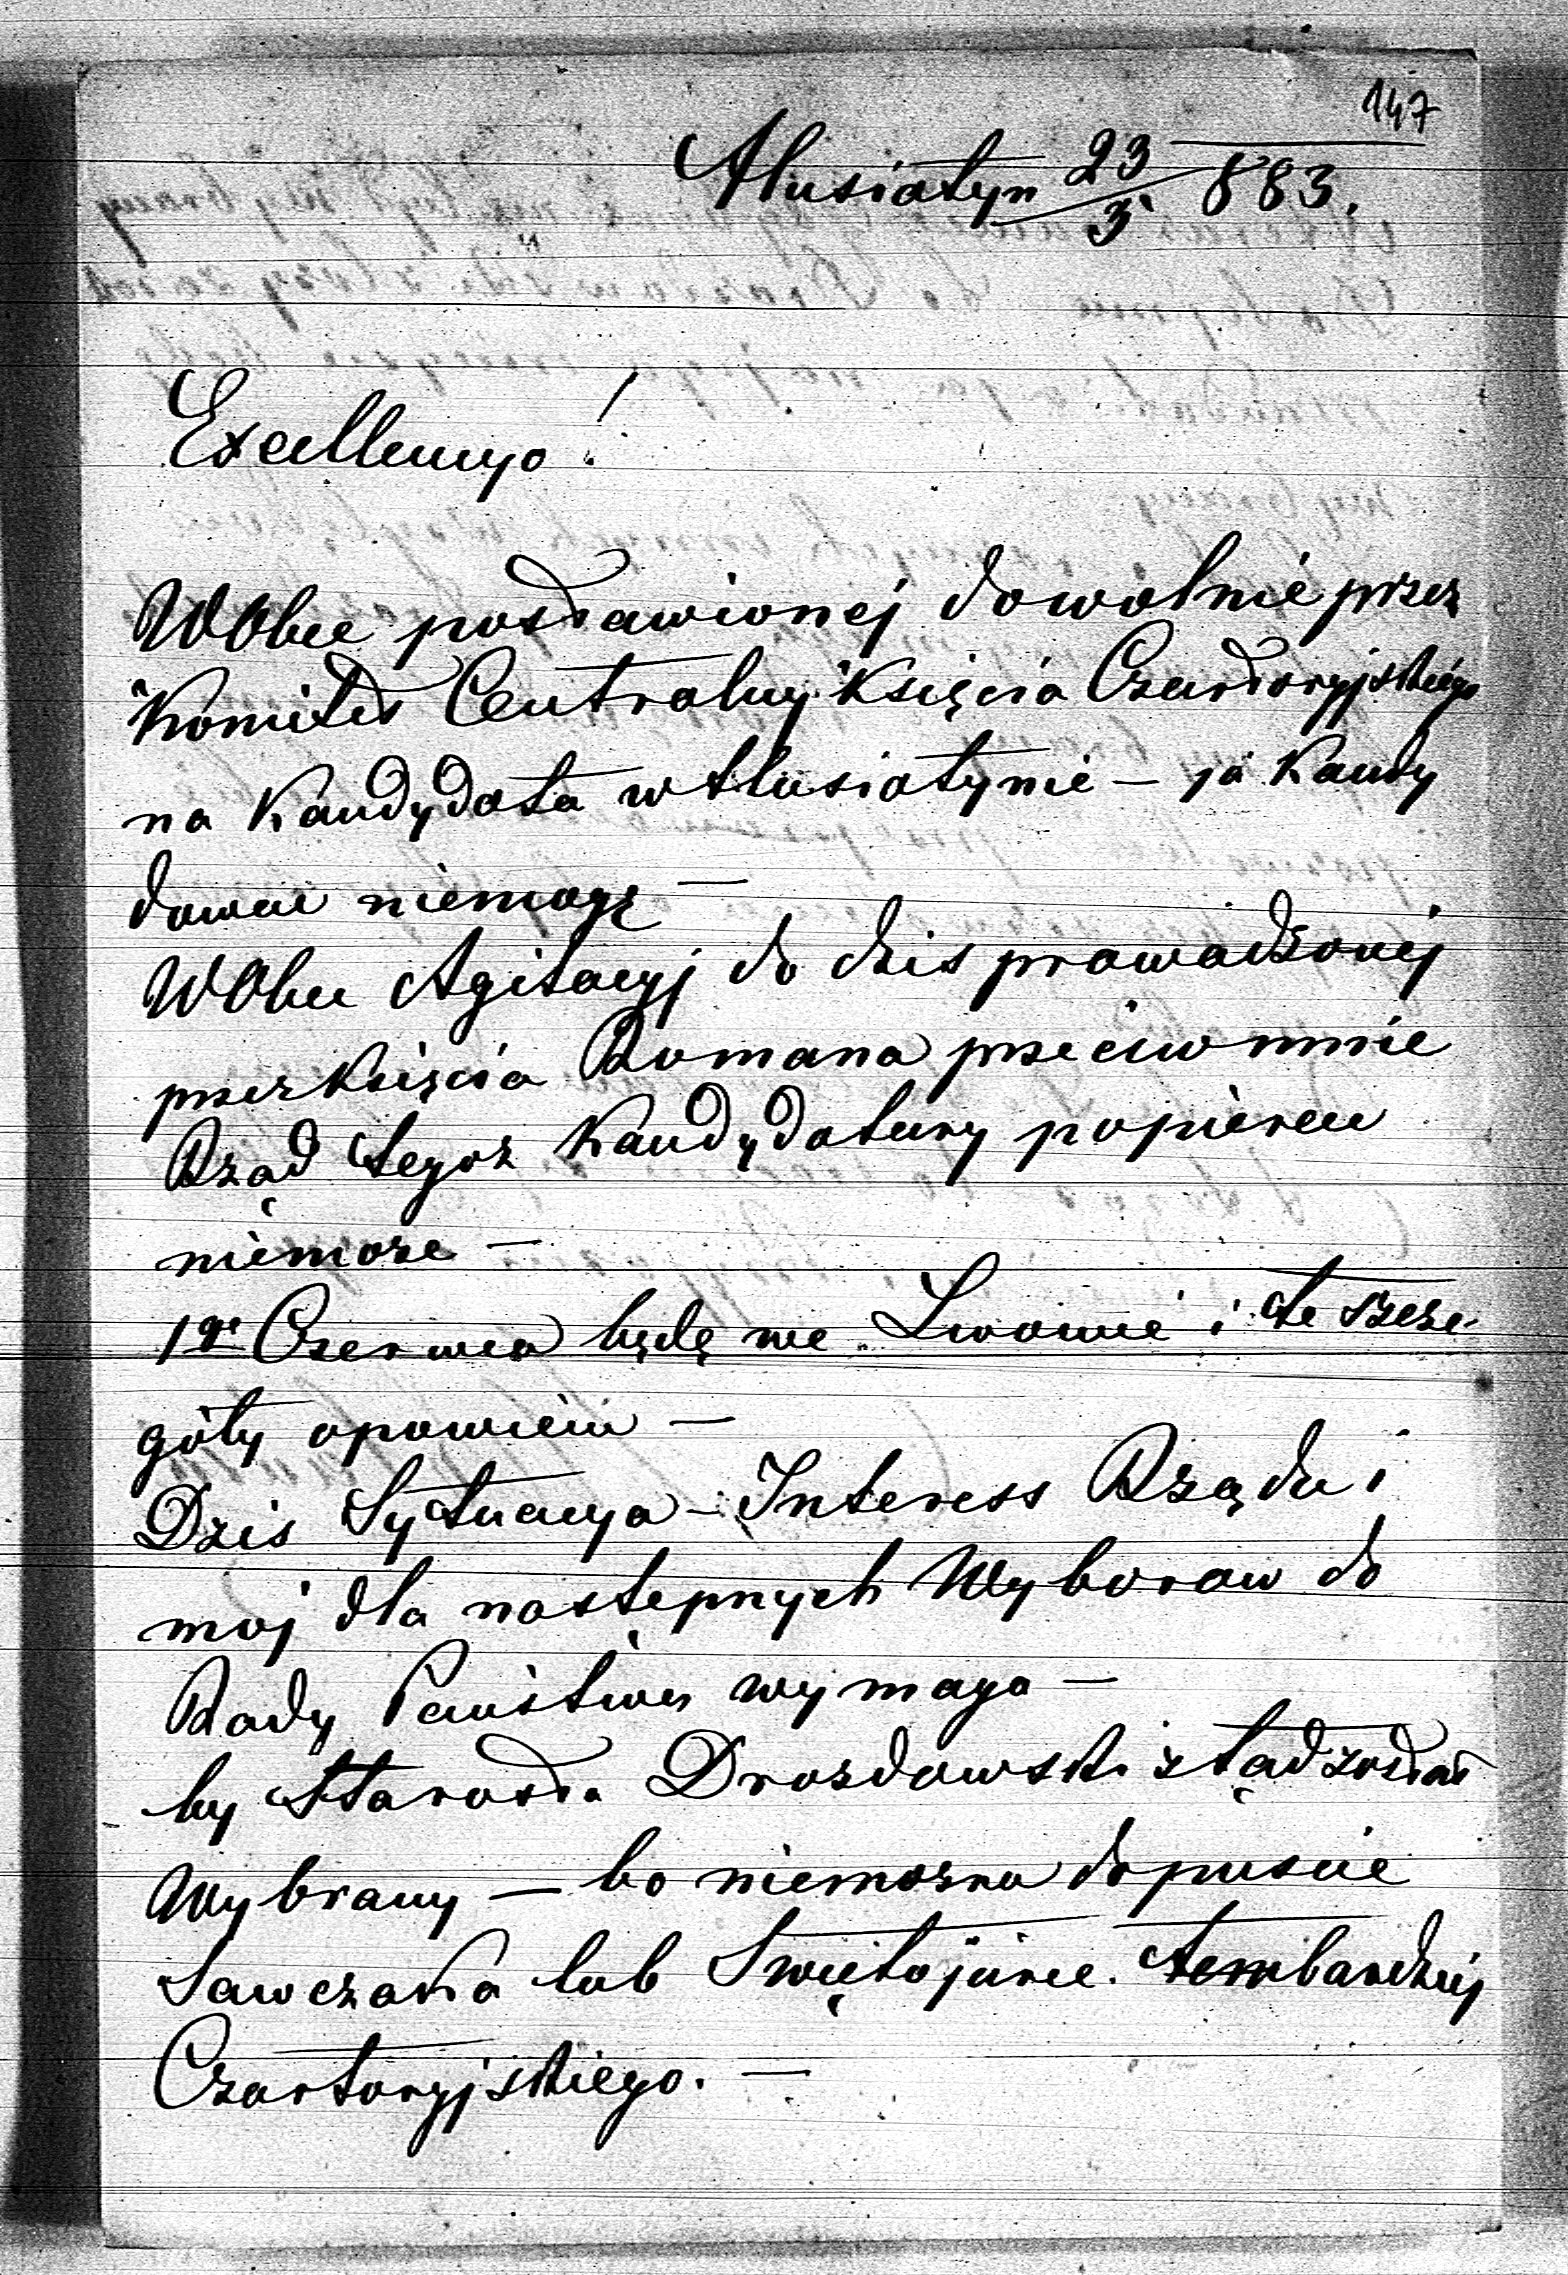 147
Husiatyn 23/5 883.
Excellencyo!
WObec postawionej dowolnie przez
Komitet Centralny Księcia Czartoryjskiego
na Kandydata w Husiatynie — ja Kandy
dować niemogę —
WObec Agitacyj do dzis prowadzonej
przez Księcia Romana przeciw mnie
Rząd tegoż Kandydatury popierać
niemoże —
1go Czerwca będę we Lwowie i te szcze-
góły opowiem —
Dzis Sytuacya – Interess Rządu i
moj dla następnych Wyborow do
Rady Państwa wymaga —
by Starosta Drozdowski ztąd został
Wybrany — bo niemożna dopuście
Sawczaka lub Swiętojurce. tembardziej
Czartoryjskiego. —